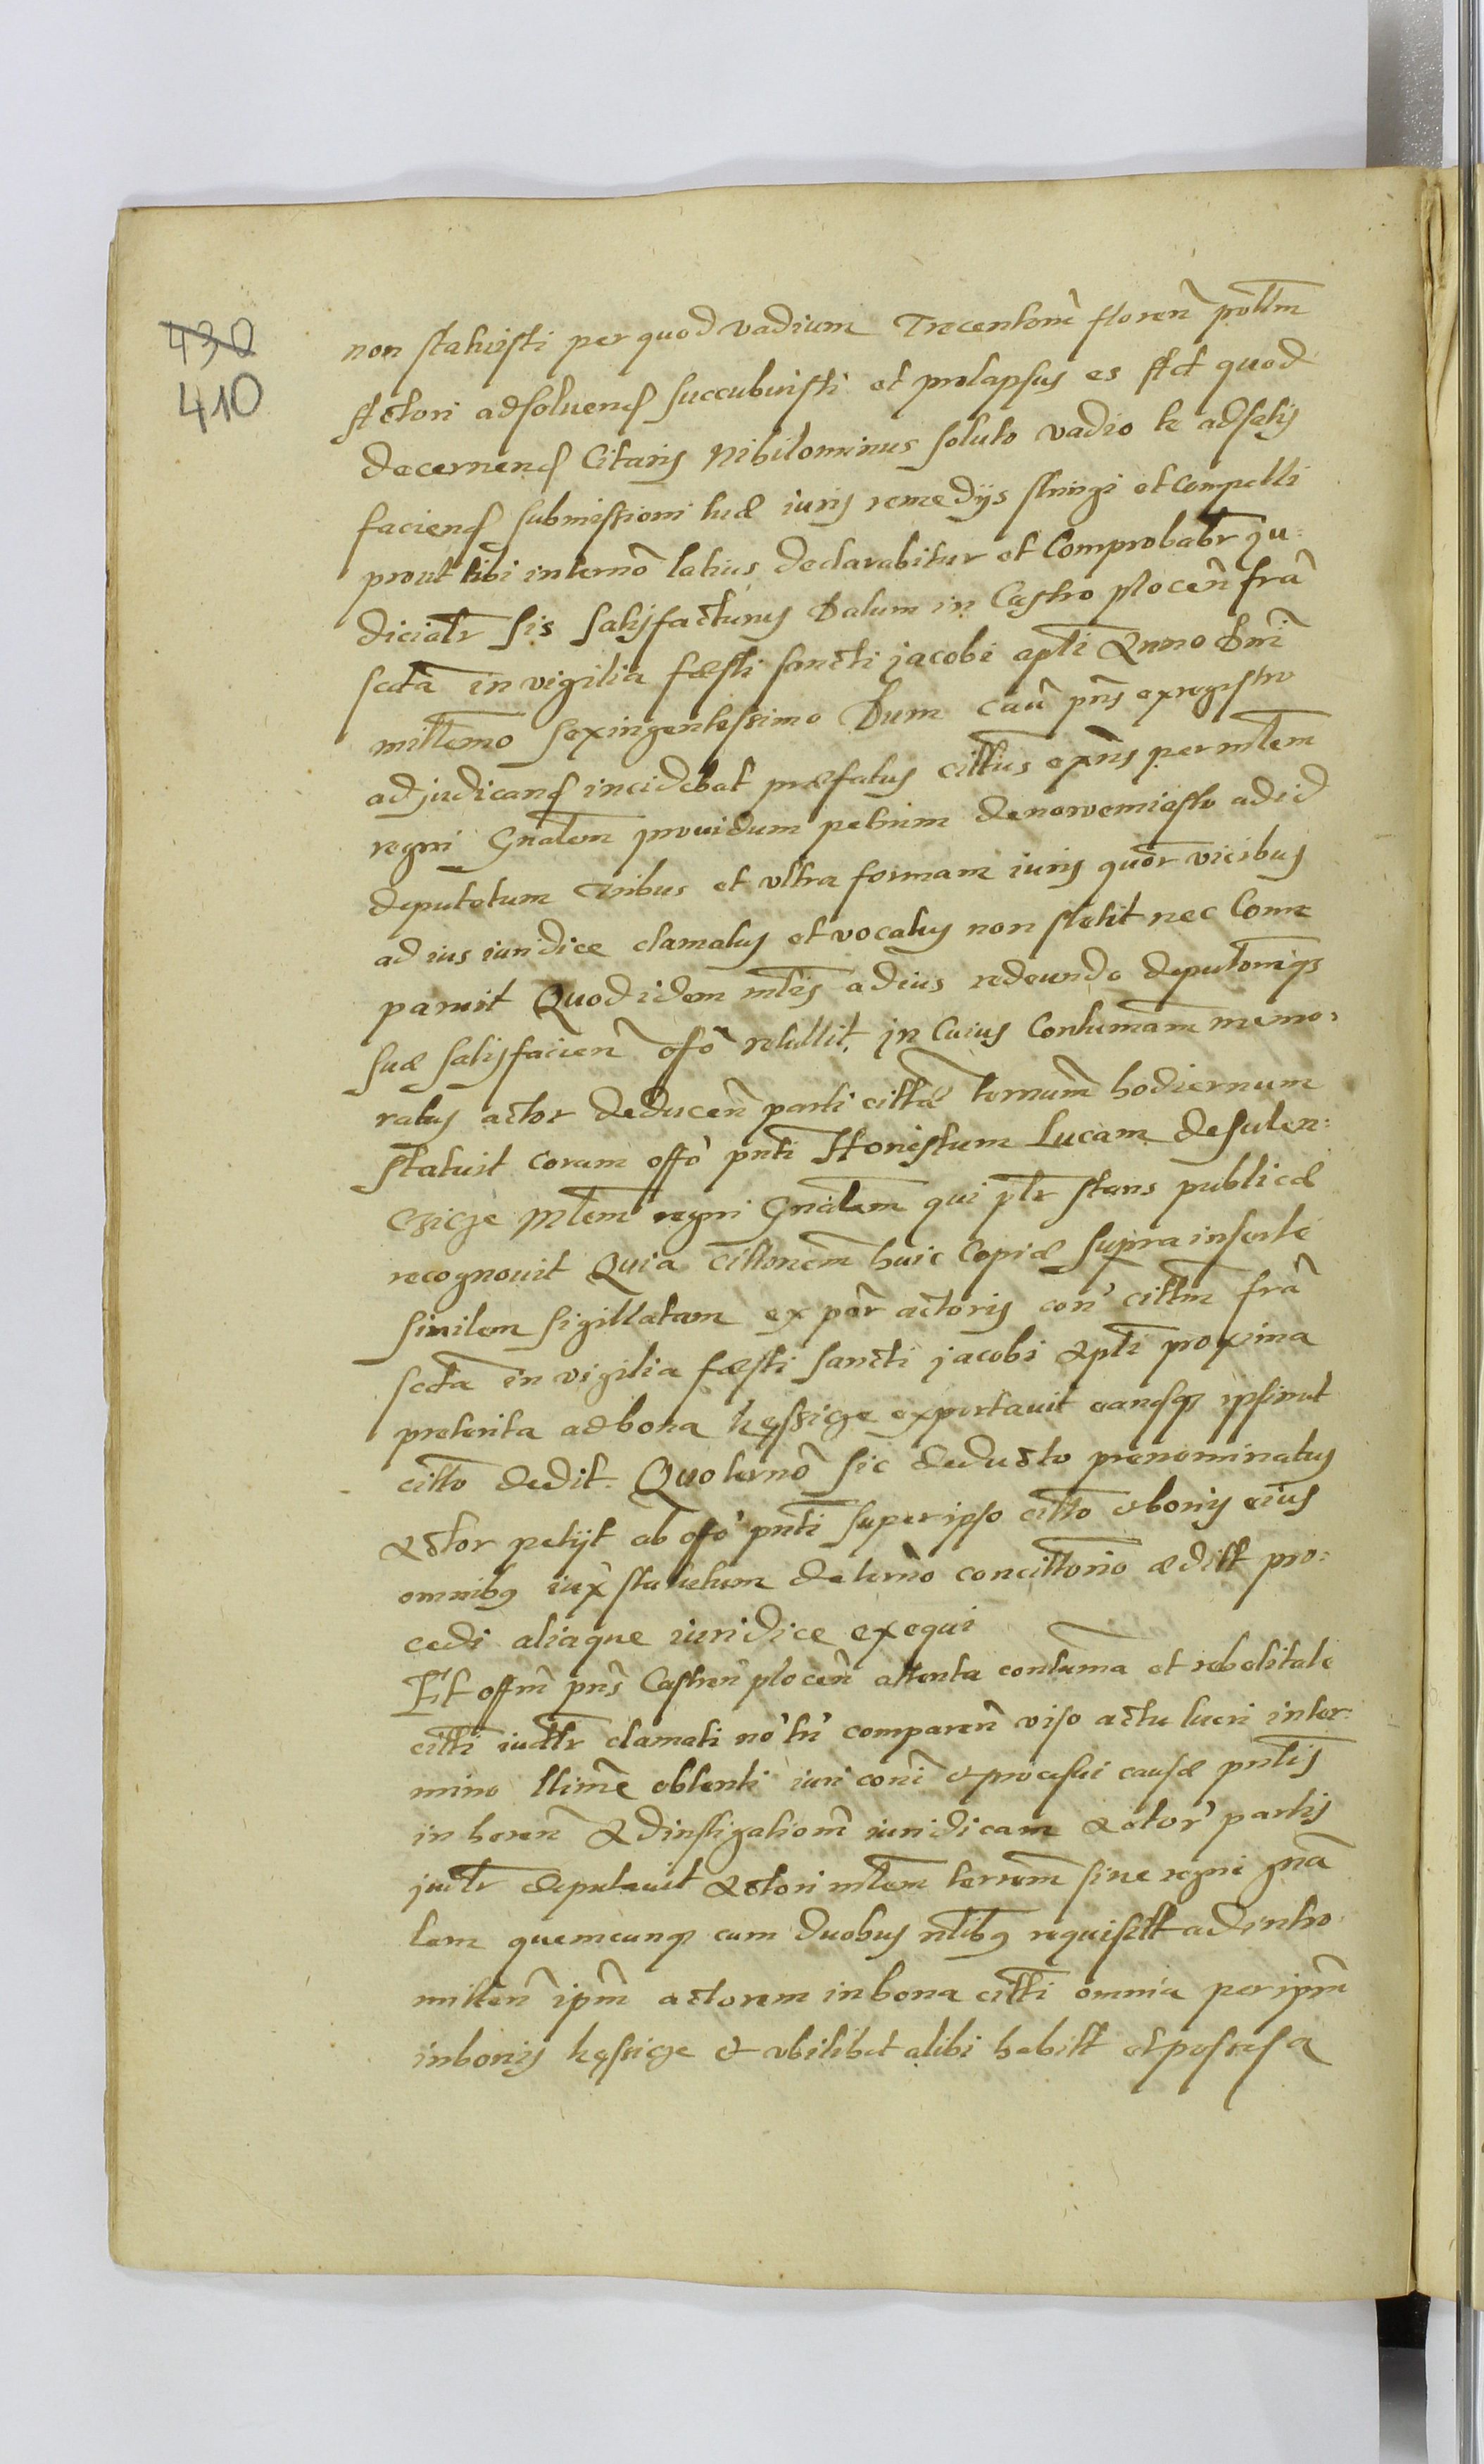 430
410
non statuisti per quod vadium Trecentorũ floreñ põltm
Actori adsoluend succubuisti et prolapsus es Act quod
decernend Citaris Nihilominus soluto vadio te adsatis
faciend submissioni tuæ iuris remedÿs stringi et compelli
prout tibi in termõ latius declarabitur et Comprobabr̃ ju=
dicialr̃ sis satisfacturus Datum in Castro ploceñ frã
scda in vigilia fæsti sancti jacobi apłi Anno Dnĩ
millemo sexingentessimo Dum cauã pñs ex registro
adjudicand incidebat præfatus cittus expñs per mltem
regni Gnalem prouidum petrum de nowemiasto ad id
deputatum Tribus et vltra formam iuris quor̃ vicibus
ad ius iuridice clamatus et vocatus non stetit nec Com
paruit Quod idem mltis ad ius redeundo deputoniqz
suæ satisfacieñ offõ retullit, jn Cuius Contumam memo=
ratus actor deduceñ parti cittã termum̃ hodiernum
statuit coram offõ pnti Honestum Lucam de sulen=
czicze Mltem regni Gnalem qui plr̃ stans publicæ
recognouit Quia cittonem huic Copiæ supra insertæ
similem sigillatam ex par actoris coñ cittm̃ frã
scda in vigilia fæsti sancti jacobi apłi proxima
preterita ad bona kęssicze exportauit eandqz ipsimet
citto dedit. Quo termõ sic deducto prenominatus
Actor petÿt ab offõ pnti super ipso citto & bonis eius
omnibq iux̃ statutum de termõ concittorio æditt pro=
cedi aliaque iuridice exequi
Et offm̃ pñs Castreñ ploceñ attenta contuma et rebelitate
citti iudlr̃ clamati nõ tñ compareñ viso actu lucri in ter=
mino llimẽ obtenti iuri comĩ & processui causæ pntis
in hereñ Ad instigationẽ iuridicam Actor̃ partis
judlr̃ deputauit Actori mltem terrem̃ siue regni gnã
lem quemcunqz cum duobus nlibq requisitt ad intro=
mitteñ ipm̃ actorem in bona citti omnia per ipm̃
in bonis kęssicze & vbilibet alibi habitt et possessa